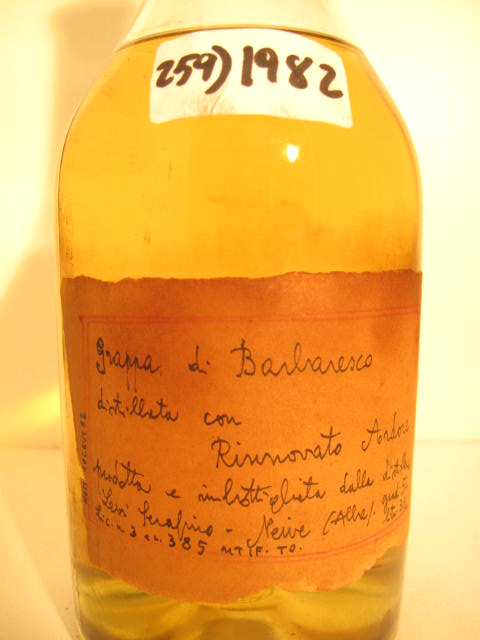 259) 1982
Grappa di Barbaresco
distillata con
Rinnovato Ardore
prodotta e imbottigliata dalla
Levi Serafino - Neive (Alba).
Lic. n. 3 e n. 385 MT. I F. TO.